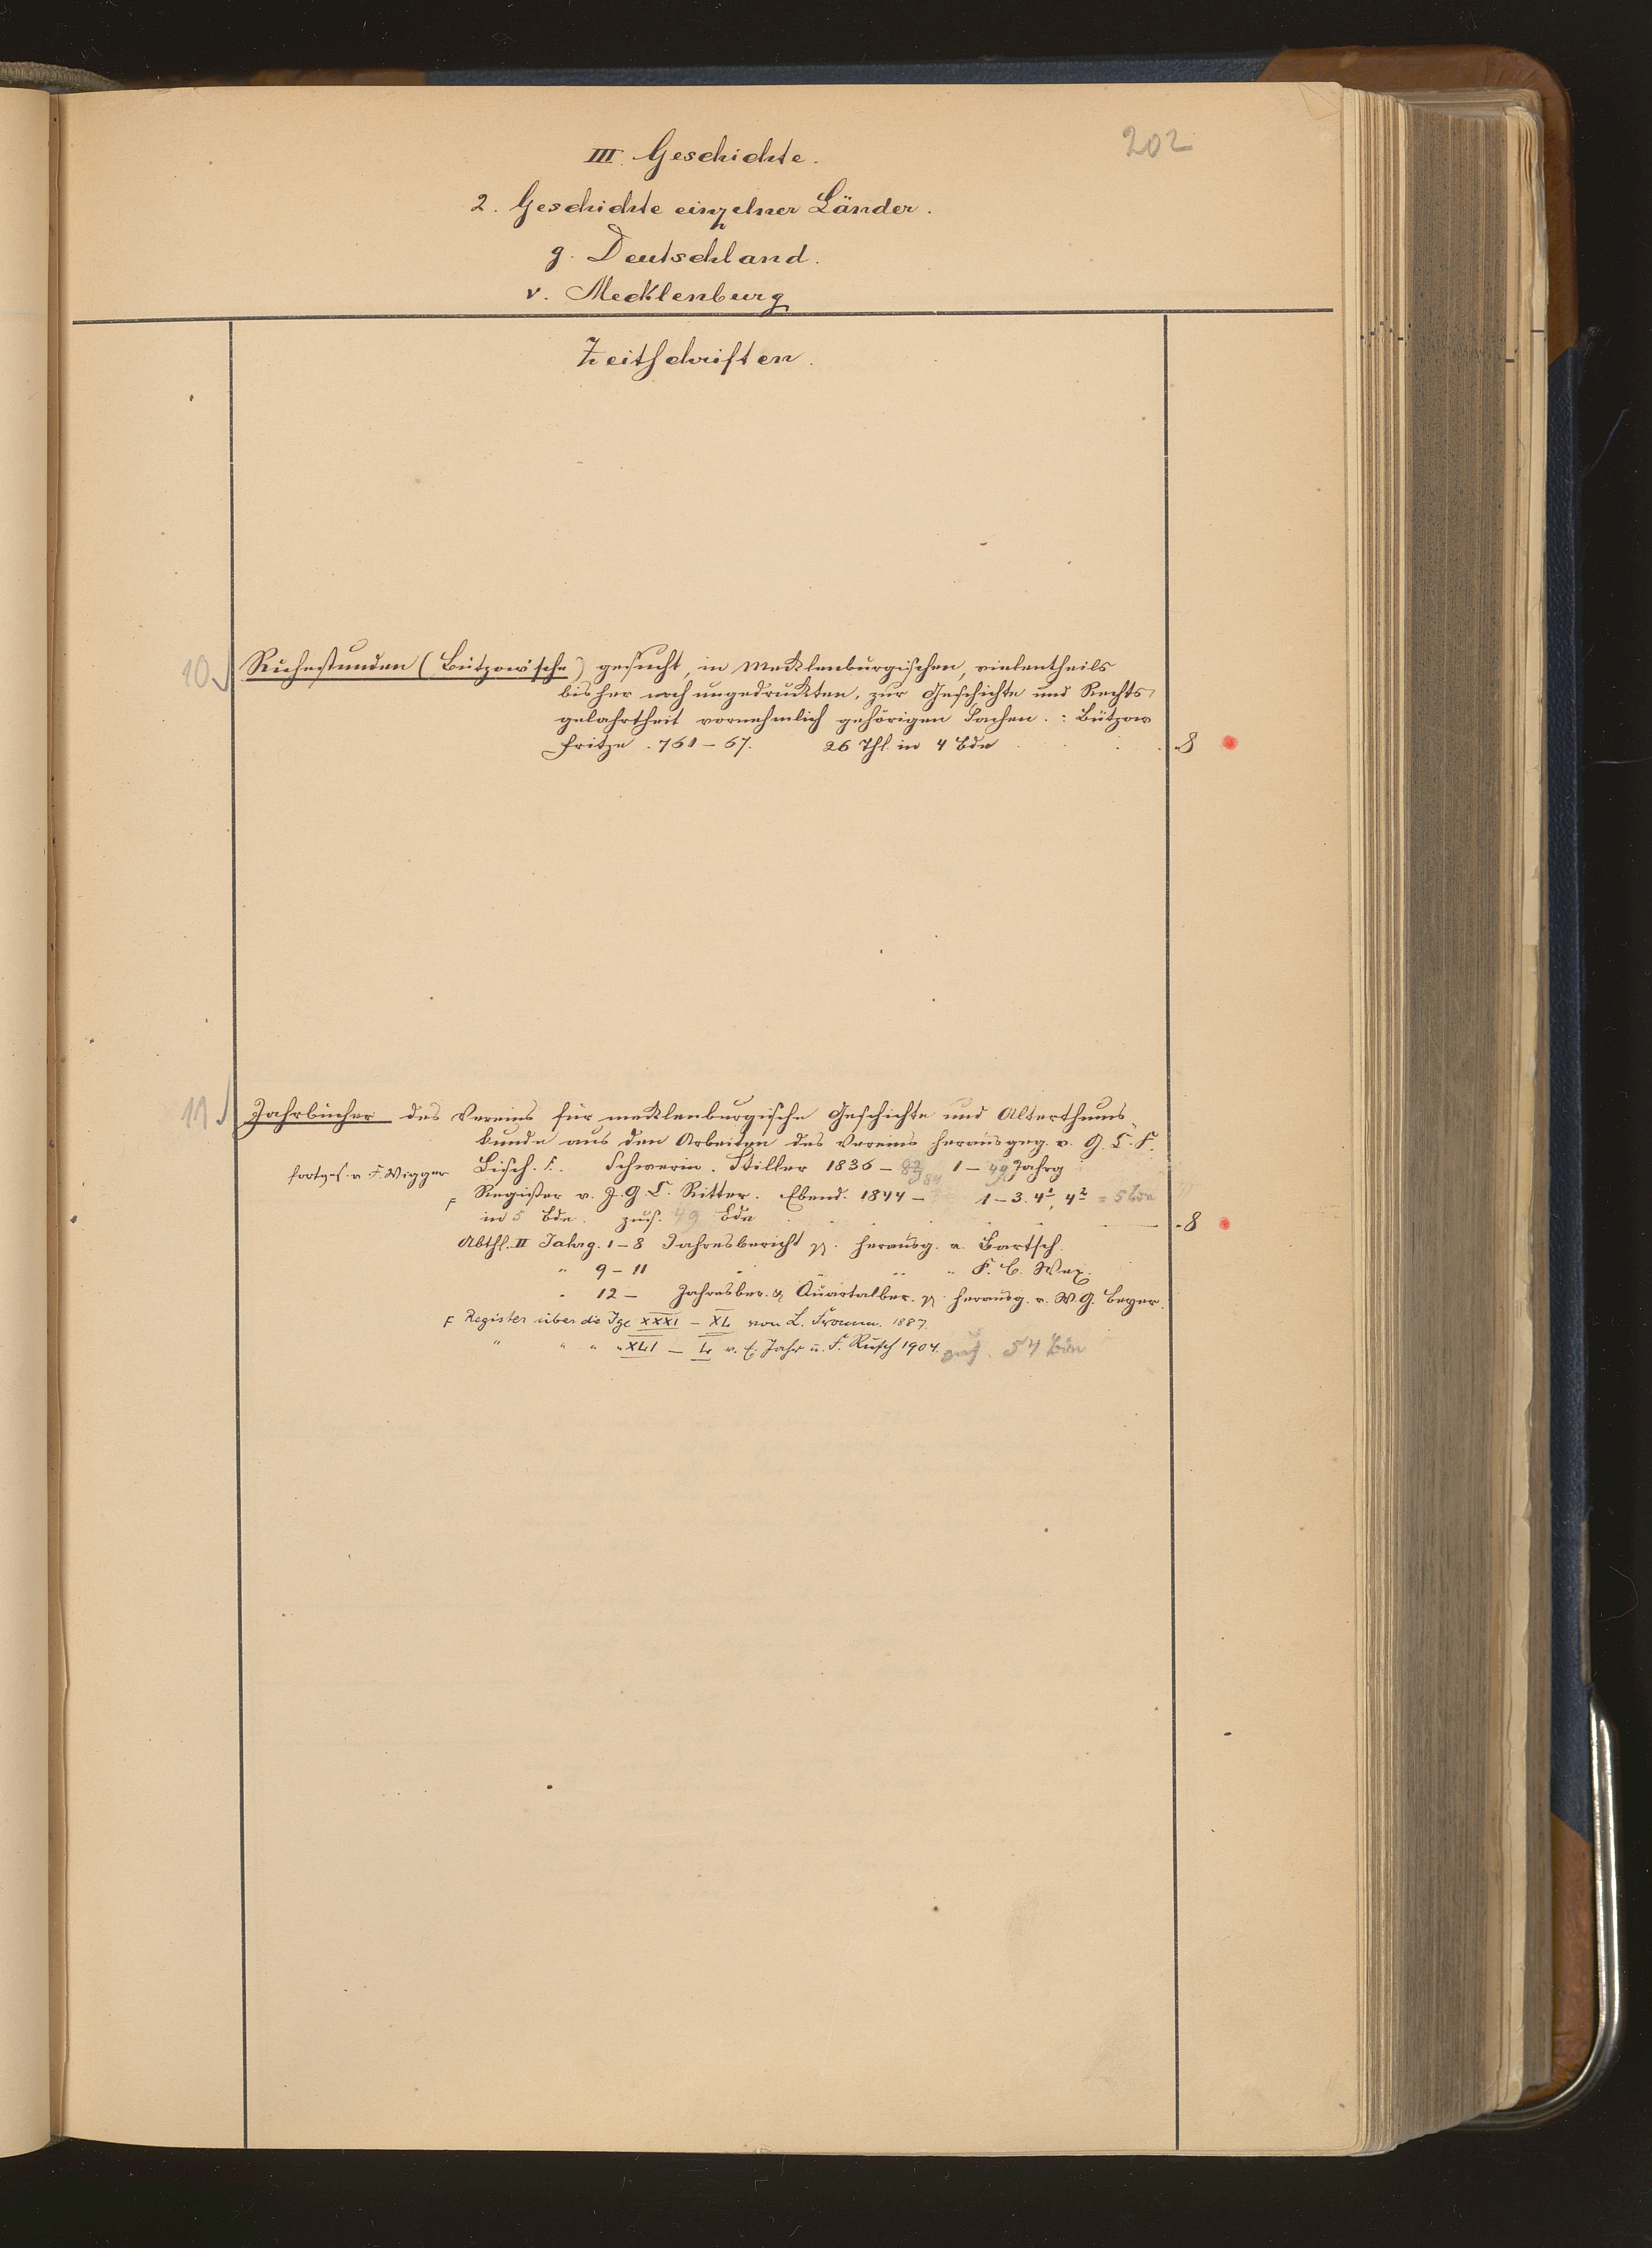 202
III. Geschichte.
2. Geschichte einzelner Länder.
g. Deutschland.
v. Mecklenburg
Zeitschriften.
10. Ruhestunden (Bützow'sche) gesucht, in Mecklenburgischen, vielentheils
bisher noch ungedruckten, zur Geschichte und Rechts-
gelahrtheit vornehmlich gehörigen Sachen. : Bützow
Fritze . 761 – 67. 26 Thl. in 4 Bde . . . 8
11. Jahrbücher des Vereins für meklenburgische Geschichte und Alterthums-
kunde aus den Arbeiten des Vereins herausgeg. v. G. C. F.
fortges. v. F. Wigger Lisch. F. Schwerin. Stiller 1836 – 84 1 – 49 Jahrg
F Register v. J. G. C. Ritter. Ebend. 1844 – 1 – 3. 4¹, 4² = 5 Bde
in 5 Bde. zus. 49 Bde . . . . 8
Abthl. II Jahrg. 1 – 8 Jahresbericht herausg. v. Bartsch.
" 9 – 11 " " " F. C. Wex.
" 12 – Jahresber. & Quartalber. herausg. v. W. G. Beyer.
F Register über die Jge XXXI – XL von L. Fromm. 1887.
" " " " XLI – L v. E. Jahr u. F. Rusch 1904. zus. 54 Bde